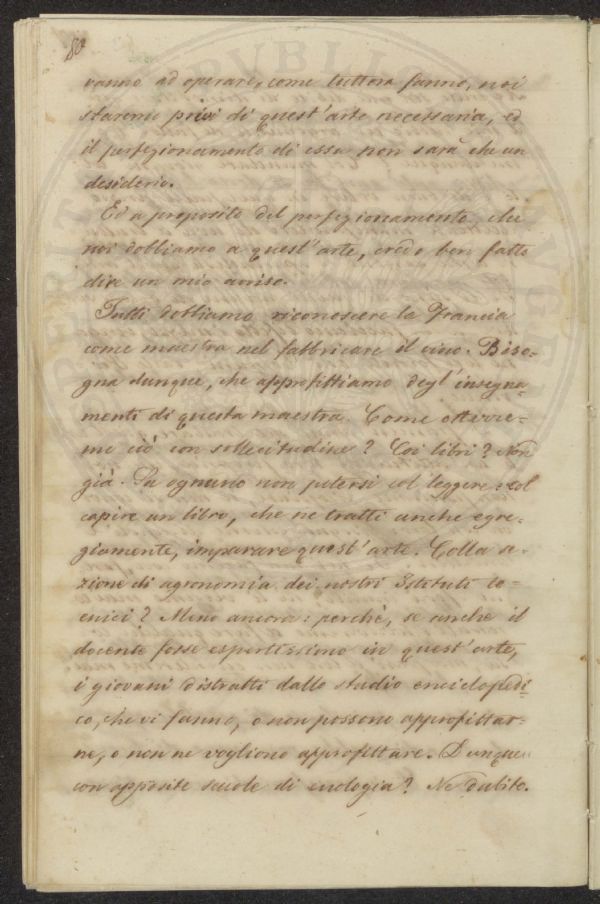 80
vanno ad operare, come tuttora fanno, noi
staremo privi di quest'arte necessaria, ed
il perfezionamento di essa non sarà che un
desiderio.
Ed a proposito del perfezionamento, che
noi dobbiamo a quest'arte, credo ben fatto
dire un mio avviso.
Tutti dobbiamo riconoscere la Francia
come maestra nel fabbricare il vino. Biso=
gna dunque, che approfittiamo degl'insegna=
menti di questa maestra. Come otterre=
mo ciò con sollecitudine? Coi libri? Non
già. Sa ognuno non potersi col leggere e col
capire un libro, che ne tratti anche egre=
giamente, imparare quest'arte. Colla se=
zione di agronomia dei nostri Istituti te=
cnici? Meno ancora: perchè, se anche il
docente fosse espertissimo in quest'arte,
i giovani distratti dallo studio enciclopedi=
co, che vi fanno, o non possono approfittar=
ne, o non ne vogliono approfittare. Dunque
con apposite scuole di enologia? Ne dubito.